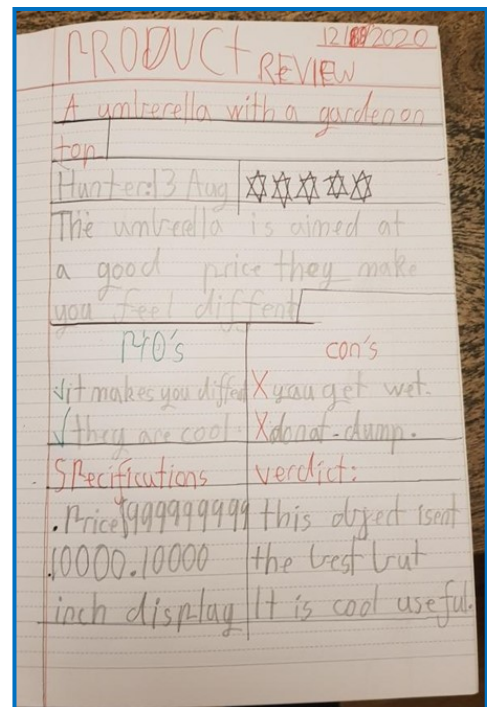 12/ /2020
PRODUCt REVIEW
A umbrerella with a garden on
top
Hunter: 13 Aug
The umbrella is aimed at
a good price they make
you feel diffent
PrO's
✓it makes you diffent
✓they are cool.
con's
X you get wet.
X do not-dump.
SPecifications
.Price $999999999
.10000.10000
inch display
verdict:
this object isent
the best but
It is cool useful.